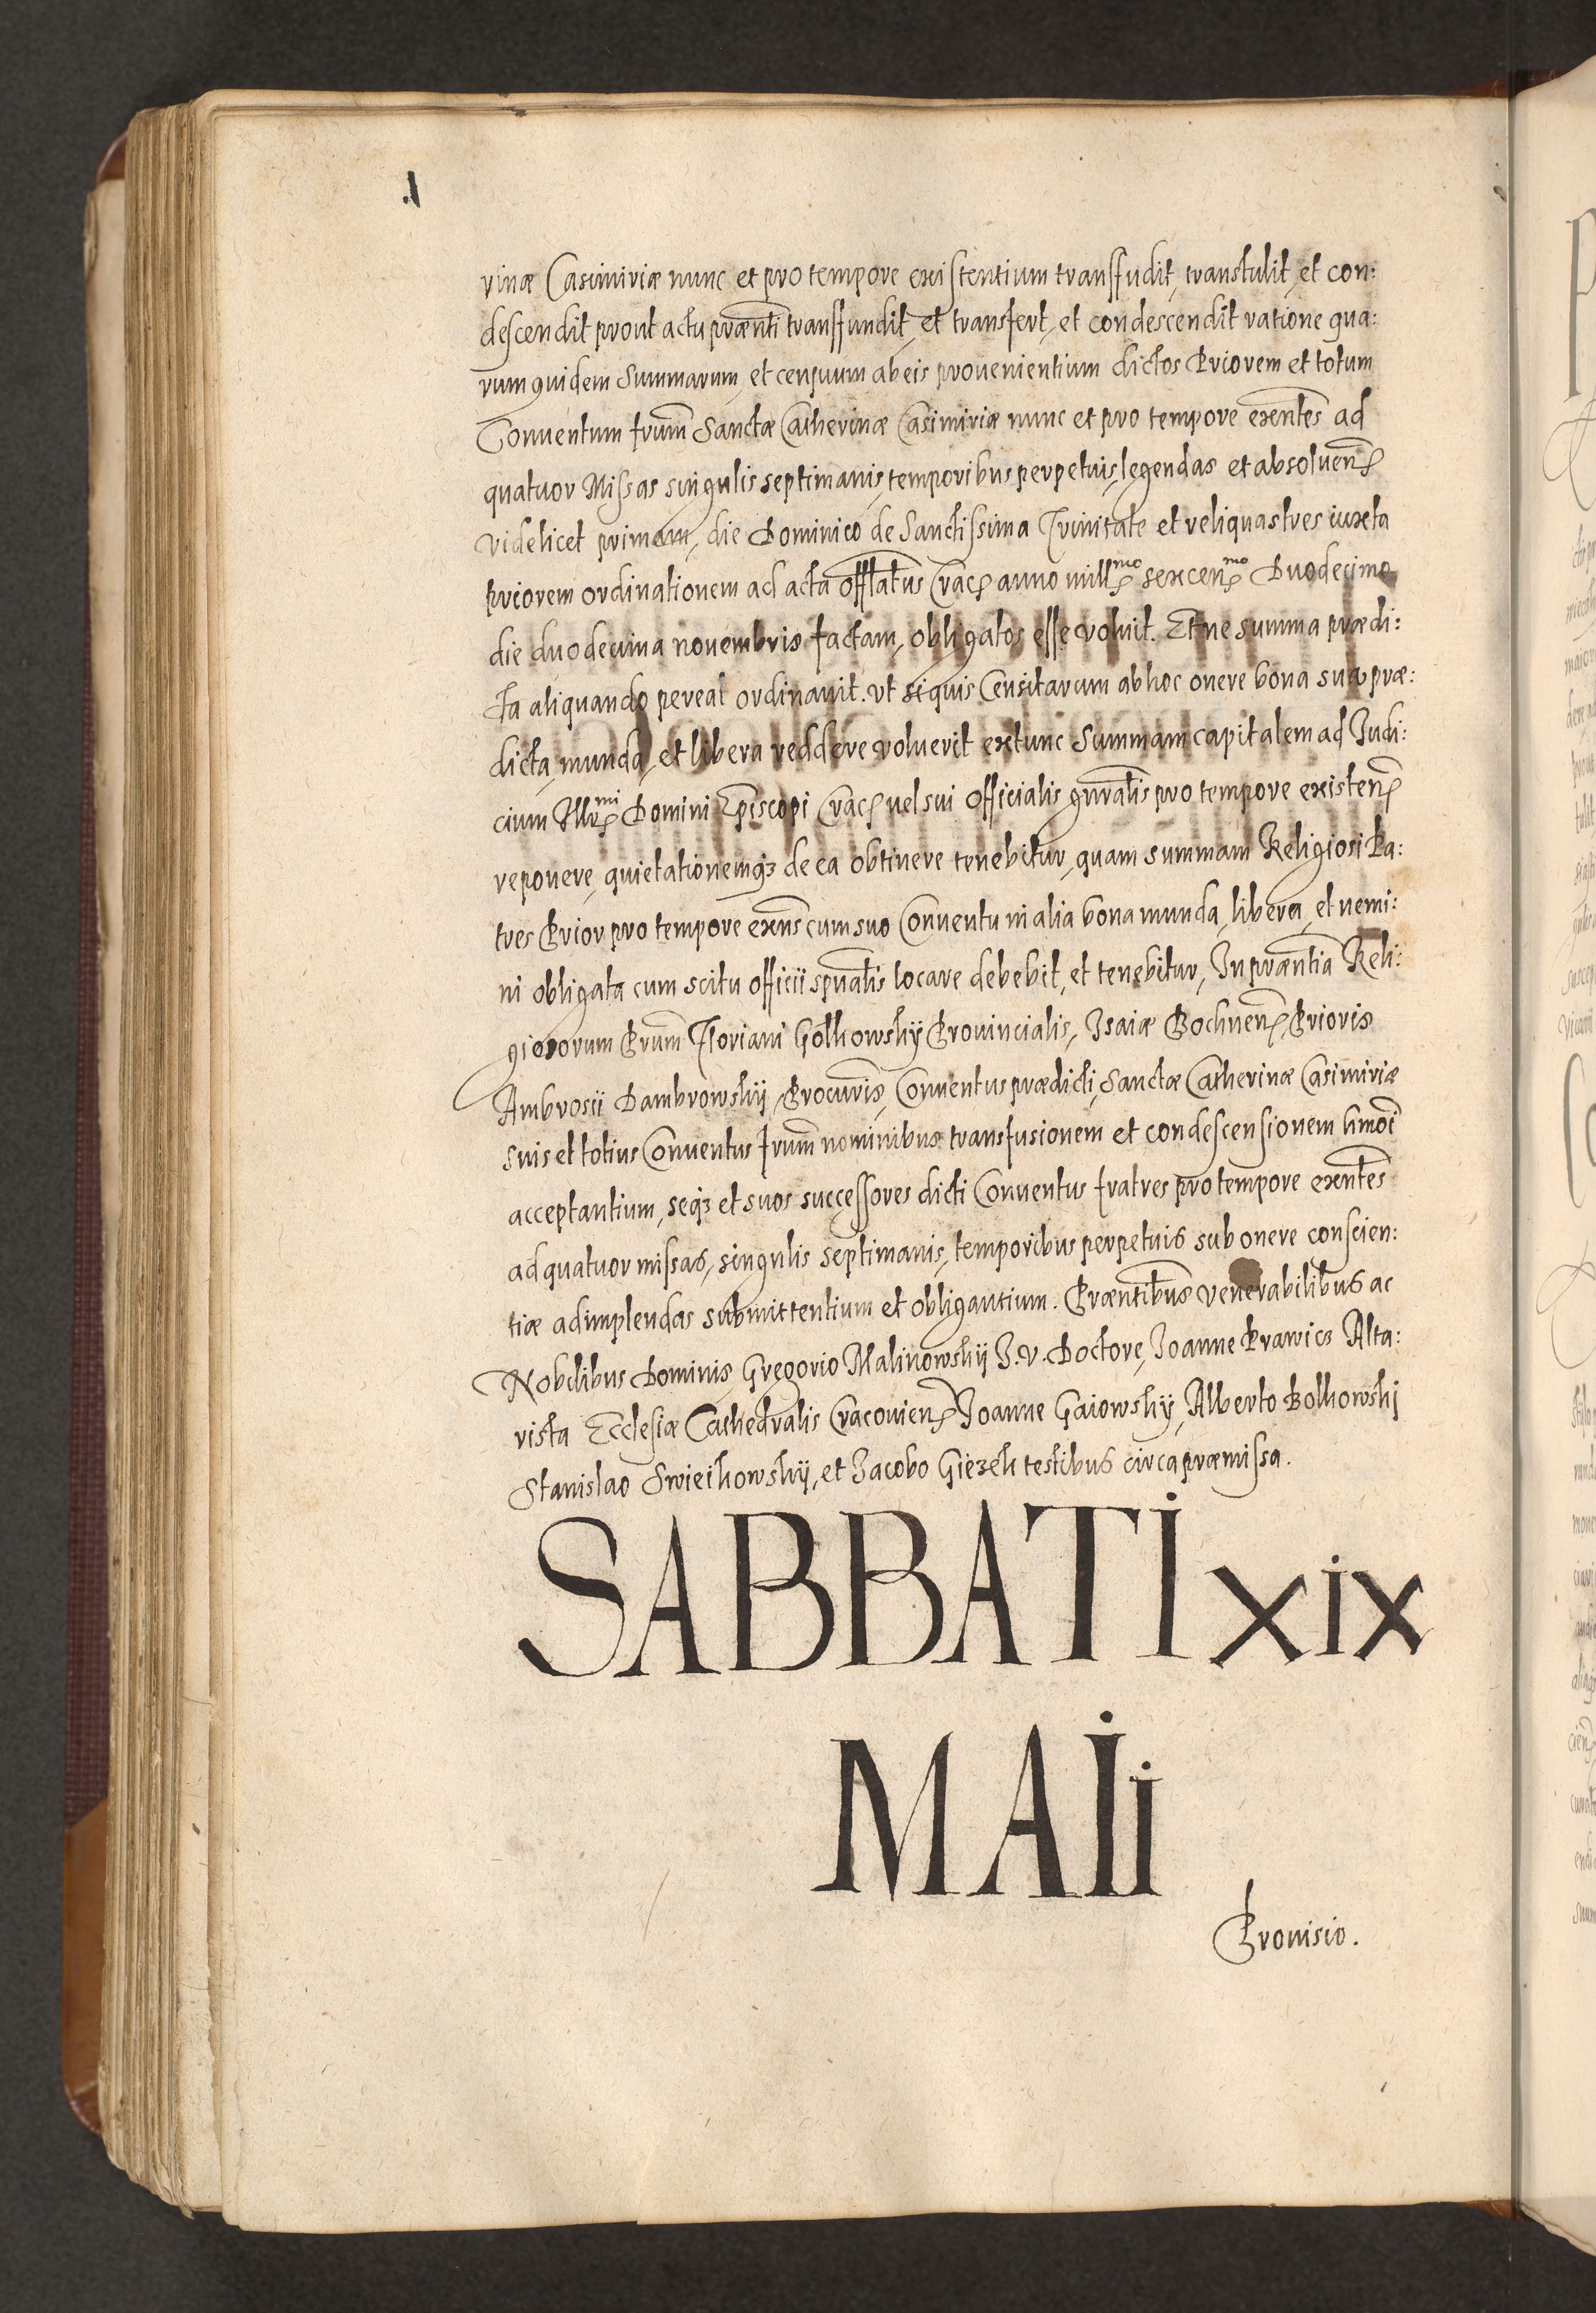 rinæ Casimiriæ nunc et pro tempore existentium transfudit, transtulit, et con:
descendit prout actu præñti transfundit, et transfert, et condescendit ratione qua:
rum quidem Summarum, et censuum ab eis prouenientium dictos Priorem et totum
Conuentum frum̃ Sanctæ Catherinæ Casimiriæ nunc et pro tempore exeñtes ad
quatuor Missas singulis septimanis, temporibus perpetuis, legendas et absoluen̄
videlicet primam, die Dominico de Sanctissima Trinitate et reliquas tres iuxta
priorem ordinationem ad acta offlatus Crac̄ anno mill̄mo sexcen̄mo Duodecimo
die duodecima nouembris factam, obligatos esse voluit. Et ne summa prædi:
cta aliquando pereat ordinauit. vt si quis Censitarum ab hoc onere bona sua præ:
dicta, munda, et libera reddere voluerit extunc Summam capitalem ad Judi:
cium Illr̄mi Domini Ep̃iscopi Crac̄ uel sui Officialis gñralis pro tempore existen̄
reponere, quietationemq3 de ea obtinere tenebitur, quam summam Religiosi Pa:
tres Prior pro tempore exñs cum suo Conuentu in alia bona munda, libera, et nemi:
ni obligata cum scitu officii spũalis locare debebit, et tenebitur, In præñtia Reli:
giosorum Prum̃ Floriani Golkowskij Prouincialis, Isaiæ Bochnen̄ Prioris
Ambrosii Dambrowskij Procuris̃, Conuentus prædicti, Sanctæ Catherinæ Casimiriæ
suis et totius Conuentus frum̃ nominibus transfusionem et condescensionem hmoĩ
acceptantium, seq3 et suos successores dicti Conuentus fratres pro tempore exeñtes
ad quatuor missas, singulis septimanis, temporibus perpetuis sub onere conscien:
tiæ adimplendas submittentium et obligantium. Præñtibus venerabilibus ac
Nobilibus Dominis, Gregorio Malinowskij J. V. Doctore, Joanne Krawicz Alta:
rista Ecclesiæ Cathedralis Cracouien̄ Joanne Gaiowskij, Alberto Bolkowskj
Stanislao Swieikowskij, et Jacobo Giezek testibus circa præmissa.
SABBATI XIX
MAIi
Prouisio.